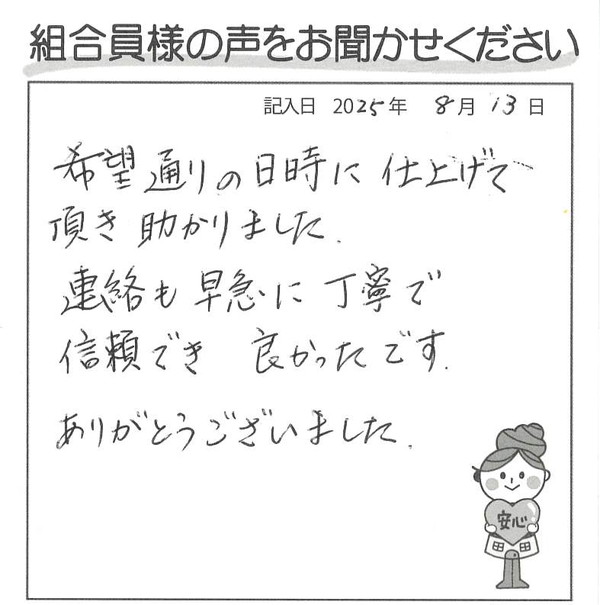 組合員様の声をお聞かせください
記入日 2025年 8月 13日
希望通りの日時に仕上げて
頂き助かりました.
連絡も早急に丁寧で
信頼でき 良かったです.
ありがとうございました.
安心